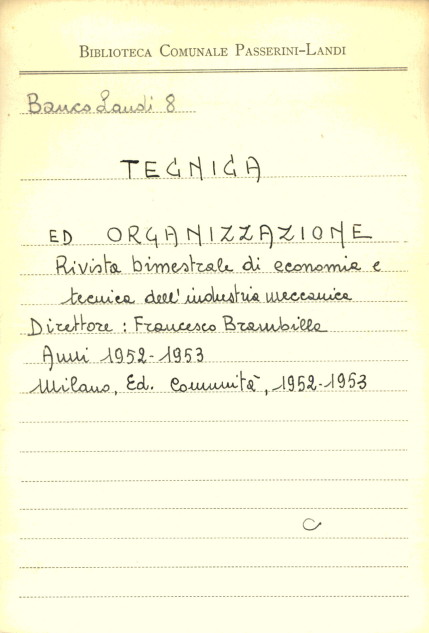 BIBLIOTECA COMUNALE PASSERINI-LANDI
Banco Landi 8
TECNICA
ED ORGANIZZAZIONE
Rivista bimestrale di economia e
tecnica dell'industria meccanica
Direttore : Francesco Brambilla
Anni 1952-1953
Milano, Ed. Comunità, 1952-1953
C